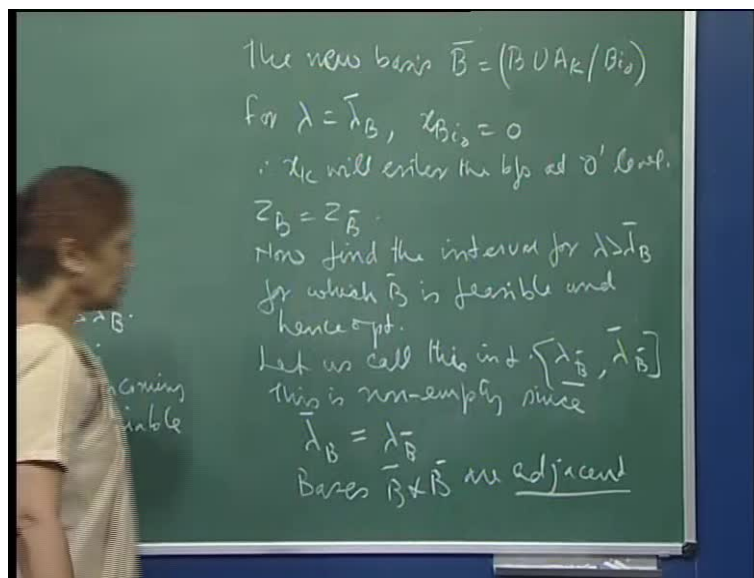 The new basis B̄ = (B ∪ A_K / B_{i₀})
for λ = λ̄_B, x_{B_{i₀}} = 0
∴ x_K will enter the bfs at '0' level.
Z_B = Z_B̄.
Now find the interval for λ ≥ λ̄_B
for which B̄ is feasible and
hence opt.
λ_B.
Let us call this int. [λ_B̄, λ̄_B̄]
ncoming
This is non-empty since
riable
λ̄_B = λ_B̄
Bases B & B̄ are adjacent